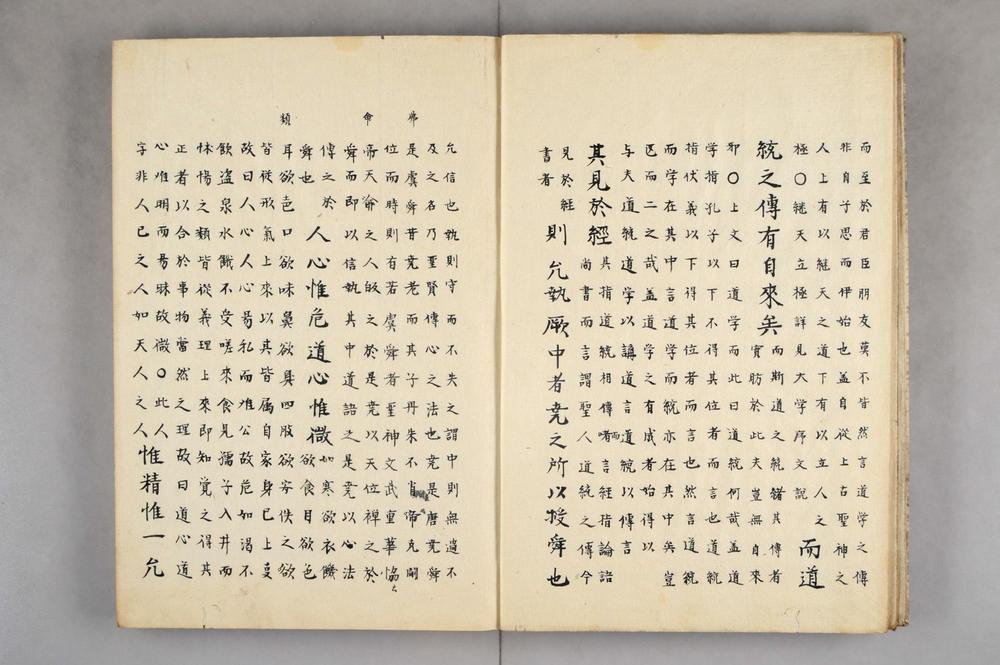 而至於君臣朋友莫不皆然言道学之傳
非自子思而伊始也盖自從上古聖神之
人上有以継天之道下有以立人之
極〇継天立極詳見大学序文說
而道
統之傳有自來矣
而斯道之統緒其傳者
實肪於此夫豈無自來
耶〇上文曰道学而此曰道統何哉盖道
学指孔子以下不得其位者而言也道統
指伏義以下得其位者而言也然言道統
而学在其中言道学而統亦在其中矣豈
匹而二之哉盖道学之有成者始得以
与夫道統道学以講道言道統以傳言
其見於經
其指道統相傳者言經指論語
尚書而言謂聖人道統之傳今
見於經
書者
則允執厥中者尭之所以授舜也
弗
命
類
允信也執則守而不失之謂中則無過不
及之名乃聖賢傳心之法也尭是唐尭舜
是虞舜昔尭老而其子丹朱不肖帝克嗣
位而時則有若虞舜者聖神文武重華協
帝天侖之人攸之於是尭以天位禅之於
舜而即以信執其中道語之是尭以心法
傳之於
舜也
人心惟危道心惟微
如寒欲衣饑
欲食目欲色
耳欲色口欲味鼻欲臭四股欲安佚之欲
皆従形氣上來以其皆属自家身已上㕝
故曰人心人心易私而难公故危如渴不
飲盗泉水餓不受嗟來食見孺子入井而
怵惕之類皆從義理上來即知覚之得其
正者以合於事物當然之理故曰道心道
心惟明而易昧故微〇此人
字非人已之人如天人之人
惟精惟一允